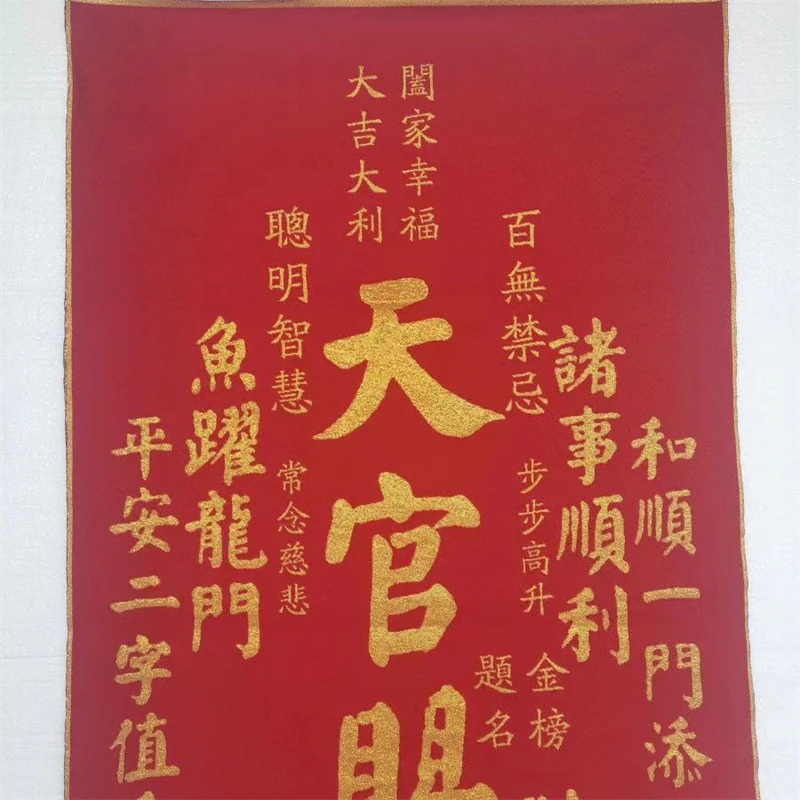 闔家幸福
大吉大利
百無禁忌
聰明智慧
天官賜
諸事順利
魚躍龍門
和順一門添
平安二字值
步步高升
常念慈悲
金榜
題名